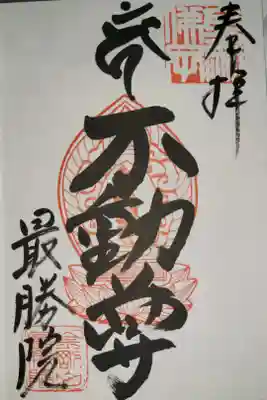 奉拝
不動尊
最勝院